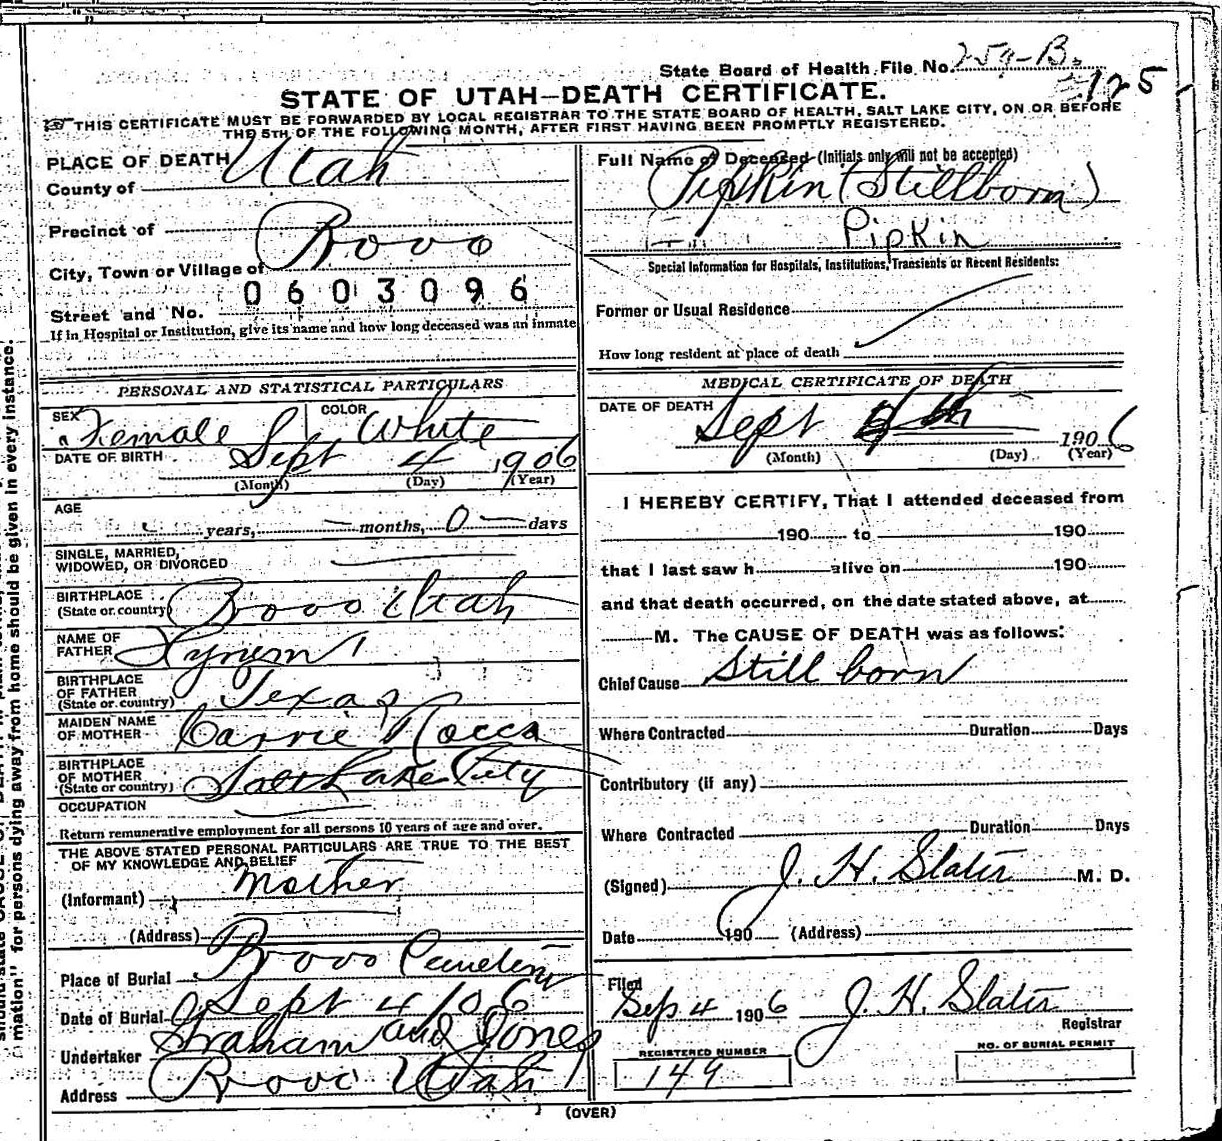 State Board of Health File No. 259-B.
125
STATE OF UTAH—DEATH CERTIFICATE.
THIS CERTIFICATE MUST BE FORWARDED BY LOCAL REGISTRAR TO THE STATE BOARD OF HEALTH, SALT LAKE CITY, ON OR BEFORE
THE 5TH OF THE FOLLOWING MONTH, AFTER FIRST HAVING BEEN PROMPTLY REGISTERED.
PLACE OF DEATH
County of Utah
Precinct of
City, Town or Village of Provo
0603096
Street and No.
If in Hospital or Institution, give its name and how long deceased was an inmate
PERSONAL AND STATISTICAL PARTICULARS
SEX Female COLOR White
DATE OF BIRTH Sept 4 1906
(Month) (Day) (Year)
AGE
years, months, 0 days
SINGLE, MARRIED,
WIDOWED, OR DIVORCED
BIRTHPLACE
(State or country) Provo Utah
NAME OF
FATHER
BIRTHPLACE
OF FATHER
(State or country) Texas
MAIDEN NAME
OF MOTHER Carrie Rocca
BIRTHPLACE
OF MOTHER
(State or country) Salt Lake City
OCCUPATION
Return remunerative employment for all persons 10 years of age and over.
THE ABOVE STATED PERSONAL PARTICULARS ARE TRUE TO THE BEST
OF MY KNOWLEDGE AND BELIEF
(Informant) Mother
(Address)
Place of Burial Provo Cemetery
Date of Burial Sept 4/06
Undertaker Graham and Jones
Address Provo Utah
Full Name of Deceased (Initials only will not be accepted)
Pipkin (Stillborn)
Pipkin
Special Information for Hospitals, Institutions, Transients or Recent Residents:
Former or Usual Residence
How long resident at place of death
MEDICAL CERTIFICATE OF DEATH
DATE OF DEATH
Sept 4th 1906
(Month) (Day) (Year)
I HEREBY CERTIFY, That I attended deceased from
190 to 190
that I last saw h alive on 190
and that death occurred, on the date stated above, at
M. The CAUSE OF DEATH was as follows:
Chief Cause Still born
Where Contracted Duration Days
Contributory (if any)
Where Contracted Duration Days
(Signed) J. H. Slater M. D.
Date 190 (Address)
Filed
Sep 4 1906 J. H. Slater
Registrar
REGISTERED NUMBER
149
NO. OF BURIAL PERMIT
(OVER)
mation" for persons dying away from home should be given in every instance.